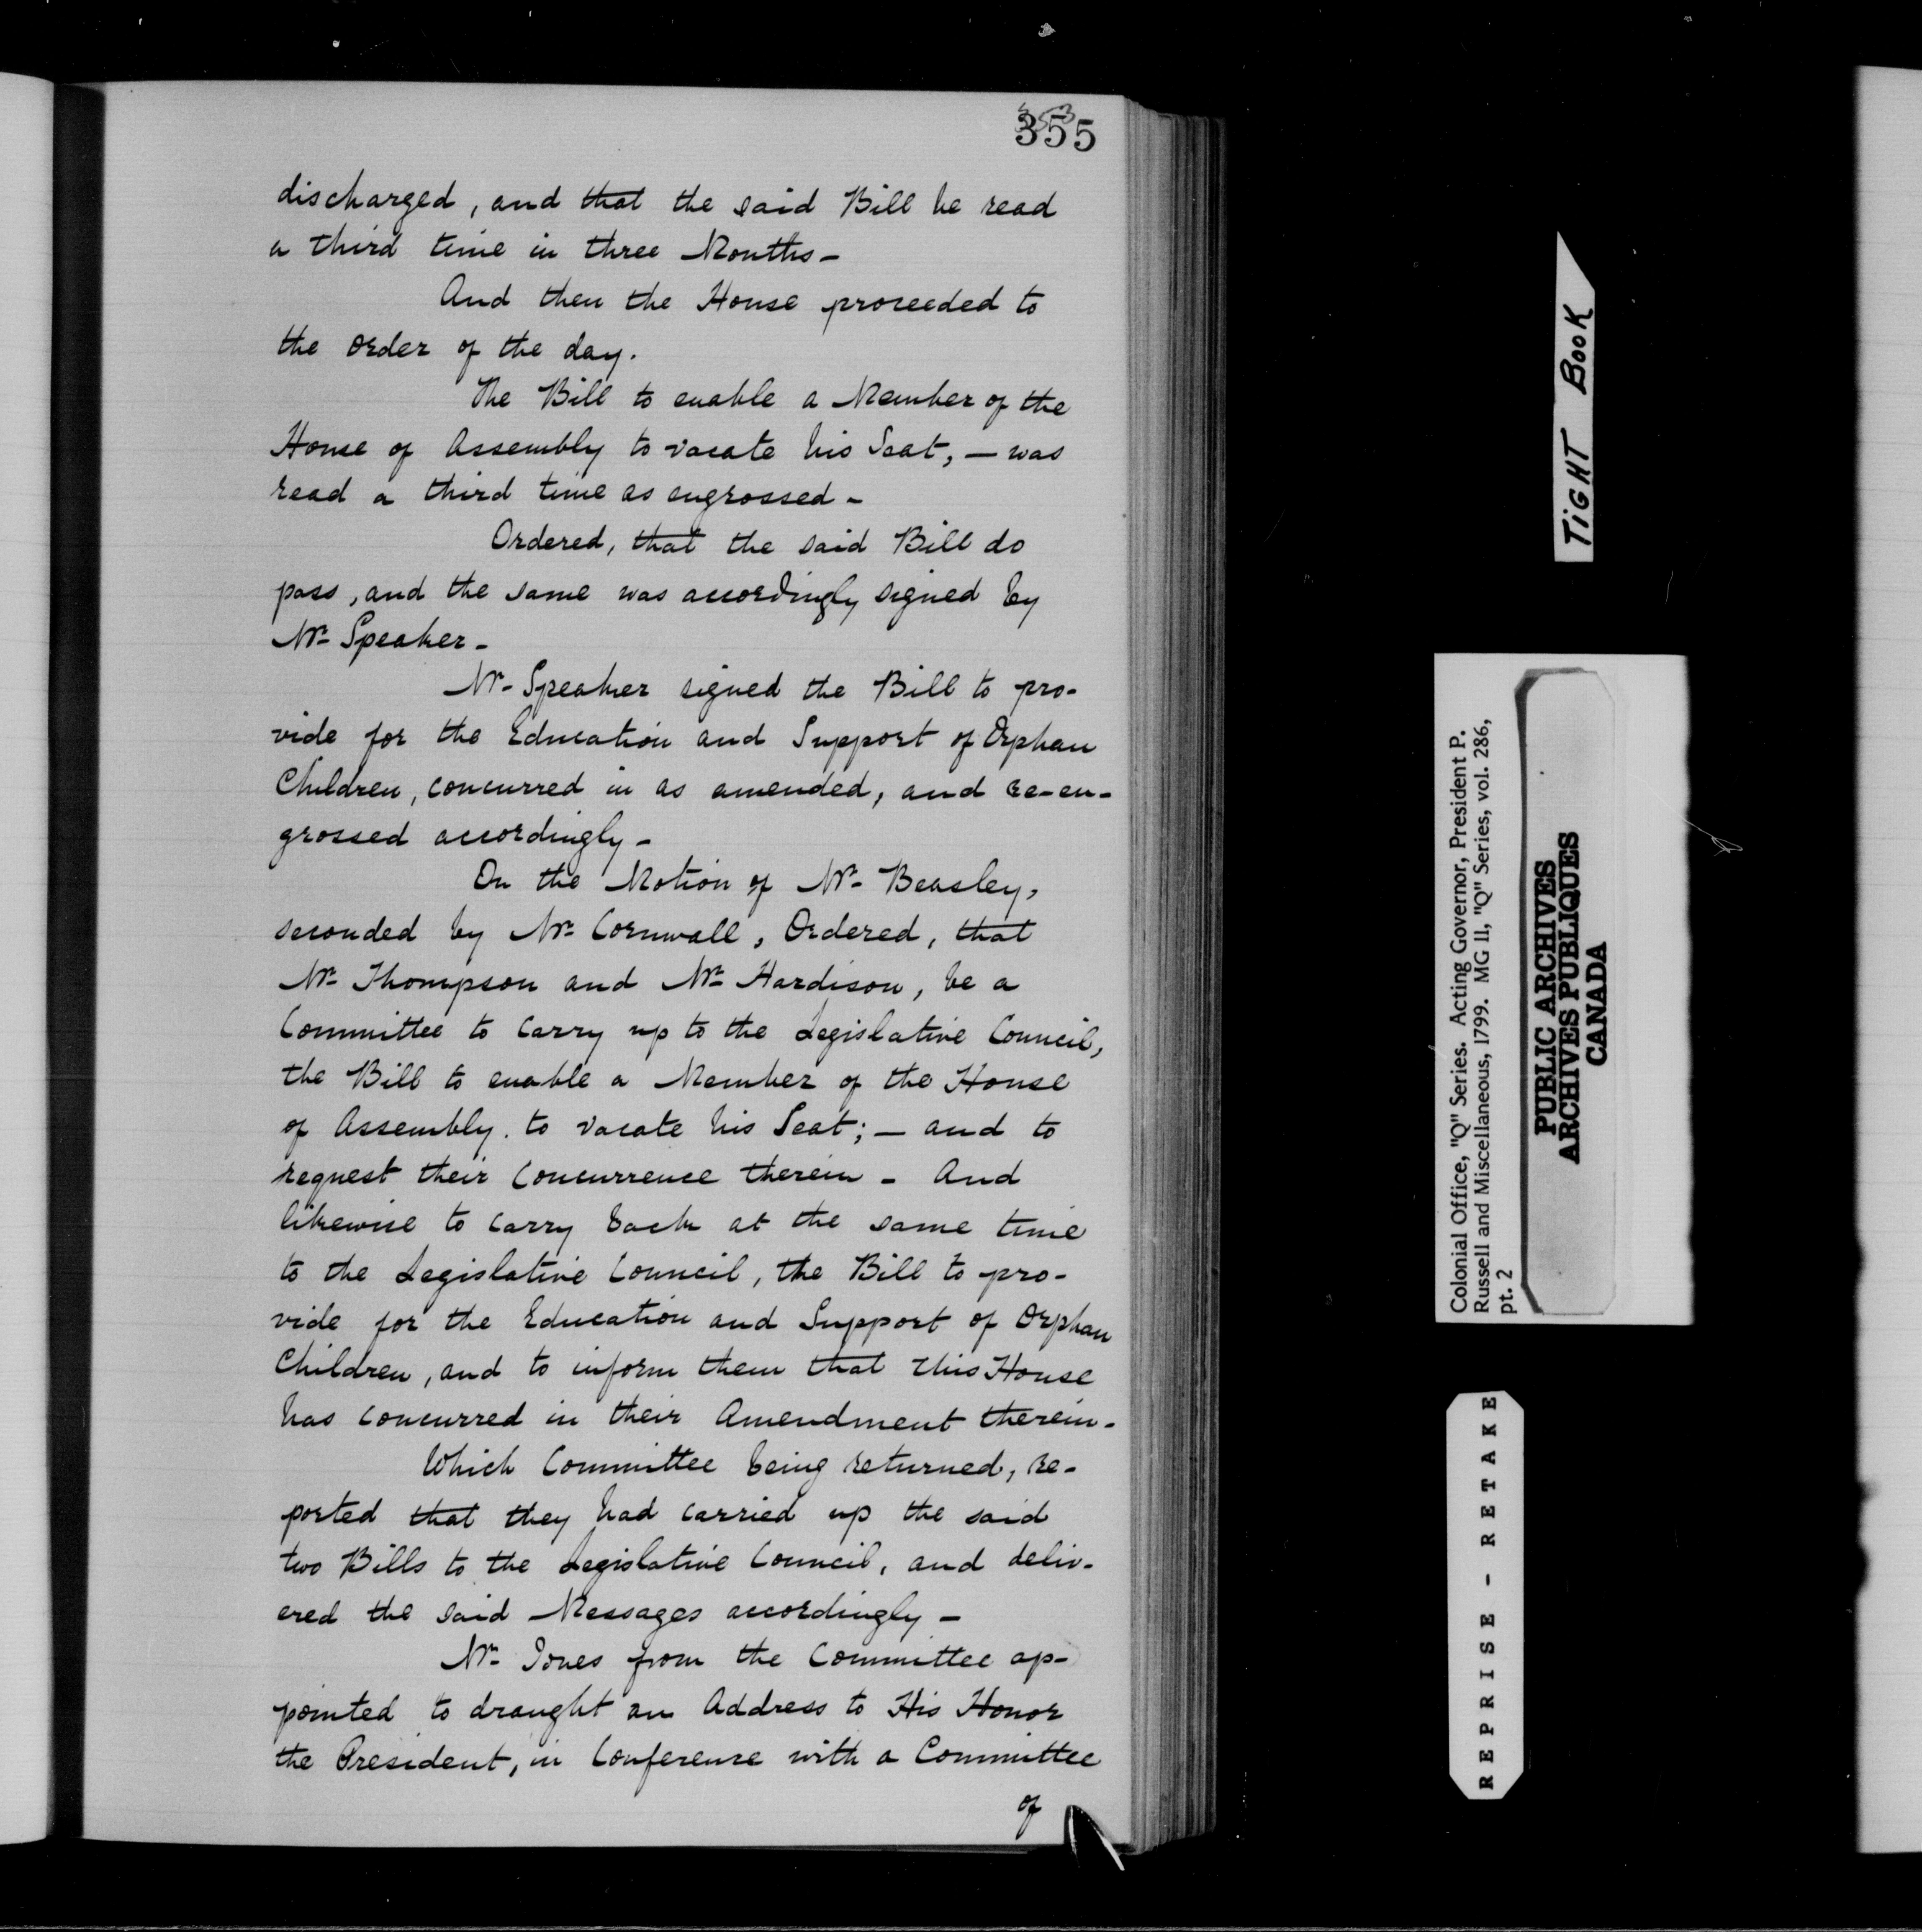 355
353
discharged, and that the said Bill be read
a third time in three Months -
And then the House proceeded to
the order of the day.
The Bill to enable a Member of the
House of Assembly to vacate his Seat, - was
read a third time as engrossed -
Ordered, that the said Bill do
pass, and the same was accordingly signed by
Mr. Speaker -
Mr. Speaker signed the Bill to pro-
vide for the Education and Support of Orphan
Children, concurred in as amended, and re-en-
grossed accordingly -
On the Motion of Mr. Beasley,
seconded by Mr. Cornwall, Ordered, that
Mr. Thompson and Mr. Hardison, be a
Committee to carry up to the Legislative Council,
the Bill to enable a Member of the House
of Assembly. to vacate his Seat; - and to
request their Concurrence therein - And
likewise to carry back at the same time
to the Legislative Council, the Bill to pro-
vide for the Education and Support of Orphan
Children, and to inform them that this House
has concurred in their Amendment therein -
Which Committee being returned, re-
ported that they had carried up the said
two Bills to the Legislative Council, and deliv-
ered the said Messages accordingly -
Mr. Jones from the Committee ap-
pointed to draught an Address to His Honor
the President, in Conference with a Committee
of
TIGHT BOOK
Colonial Office, "Q" Series. Acting Governor, President P.
Russell and Miscellaneous, 1799. MG 11, "Q" Series, vol. 286,
pt. 2
PUBLIC ARCHIVES
ARCHIVES PUBLIQUES
CANADA
REPRISE - RETAKE